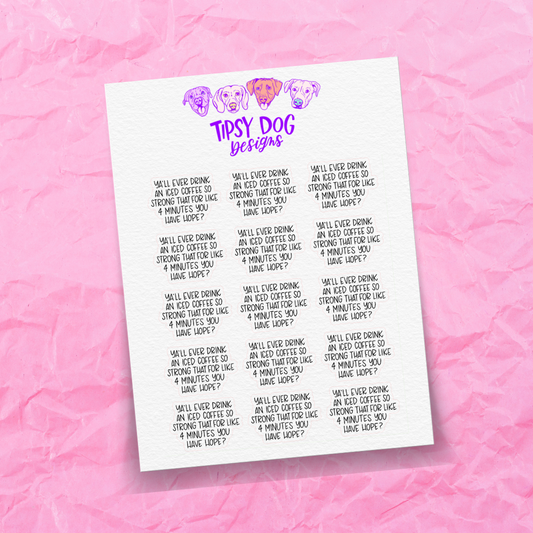 TIPSY DOG
Designs
YA'LL EVER DRINK
AN ICED COFFEE SO
STRONG THAT FOR LIKE
4 MINUTES YOU
HAVE HOPE?
YA'LL EVER DRINK
AN ICED COFFEE SO
STRONG THAT FOR LIKE
4 MINUTES YOU
HAVE HOPE?
YA'LL EVER DRINK
AN ICED COFFEE SO
STRONG THAT FOR LIKE
4 MINUTES YOU
HAVE HOPE?
YA'LL EVER DRINK
AN ICED COFFEE SO
STRONG THAT FOR LIKE
4 MINUTES YOU
HAVE HOPE?
YA'LL EVER DRINK
AN ICED COFFEE SO
STRONG THAT FOR LIKE
4 MINUTES YOU
HAVE HOPE?
YA'LL EVER DRINK
AN ICED COFFEE SO
STRONG THAT FOR LIKE
4 MINUTES YOU
HAVE HOPE?
YA'LL EVER DRINK
AN ICED COFFEE SO
STRONG THAT FOR LIKE
4 MINUTES YOU
HAVE HOPE?
YA'LL EVER DRINK
AN ICED COFFEE SO
STRONG THAT FOR LIKE
4 MINUTES YOU
HAVE HOPE?
YA'LL EVER DRINK
AN ICED COFFEE SO
STRONG THAT FOR LIKE
4 MINUTES YOU
HAVE HOPE?
YA'LL EVER DRINK
AN ICED COFFEE SO
STRONG THAT FOR LIKE
4 MINUTES YOU
HAVE HOPE?
YA'LL EVER DRINK
AN ICED COFFEE SO
STRONG THAT FOR LIKE
4 MINUTES YOU
HAVE HOPE?
YA'LL EVER DRINK
AN ICED COFFEE SO
STRONG THAT FOR LIKE
4 MINUTES YOU
HAVE HOPE?
YA'LL EVER DRINK
AN ICED COFFEE SO
STRONG THAT FOR LIKE
4 MINUTES YOU
HAVE HOPE?
YA'LL EVER DRINK
AN ICED COFFEE SO
STRONG THAT FOR LIKE
4 MINUTES YOU
HAVE HOPE?
YA'LL EVER DRINK
AN ICED COFFEE SO
STRONG THAT FOR LIKE
4 MINUTES YOU
HAVE HOPE?